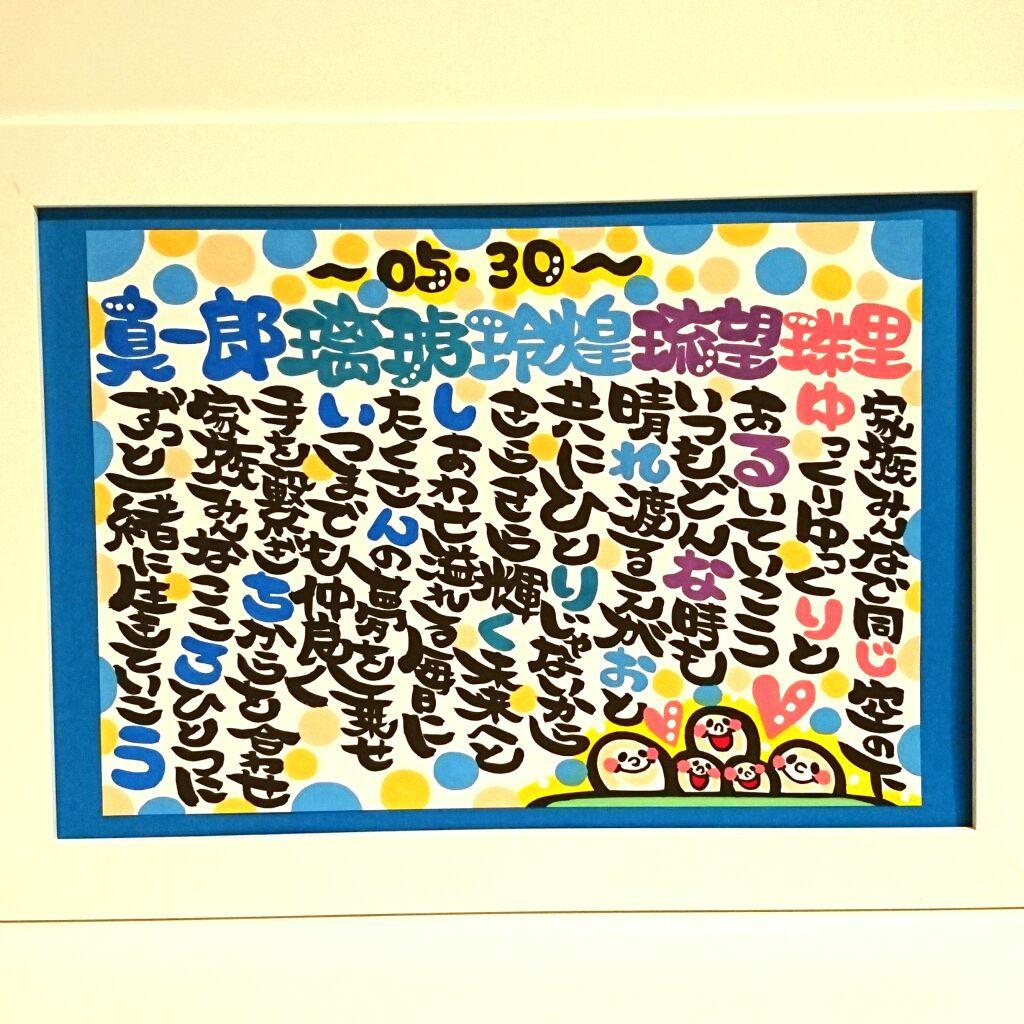 ～05.30～
真一郎 璃琥 玲煌 琉望 珠里
家族みんなで同じ空の下
ゆっくりゆっくりと
あるいていこう
いつもどんな時も
晴れ渡るえがおと
共にひとりじゃないから
きらきら輝く未来へと
しあわせ溢れる毎日に
たくさんの夢を乗せ
いつまでも仲良く
手を繋ぎちからを合わせ
家族みんなこころひとつに
ずっと一緒に生きていこう